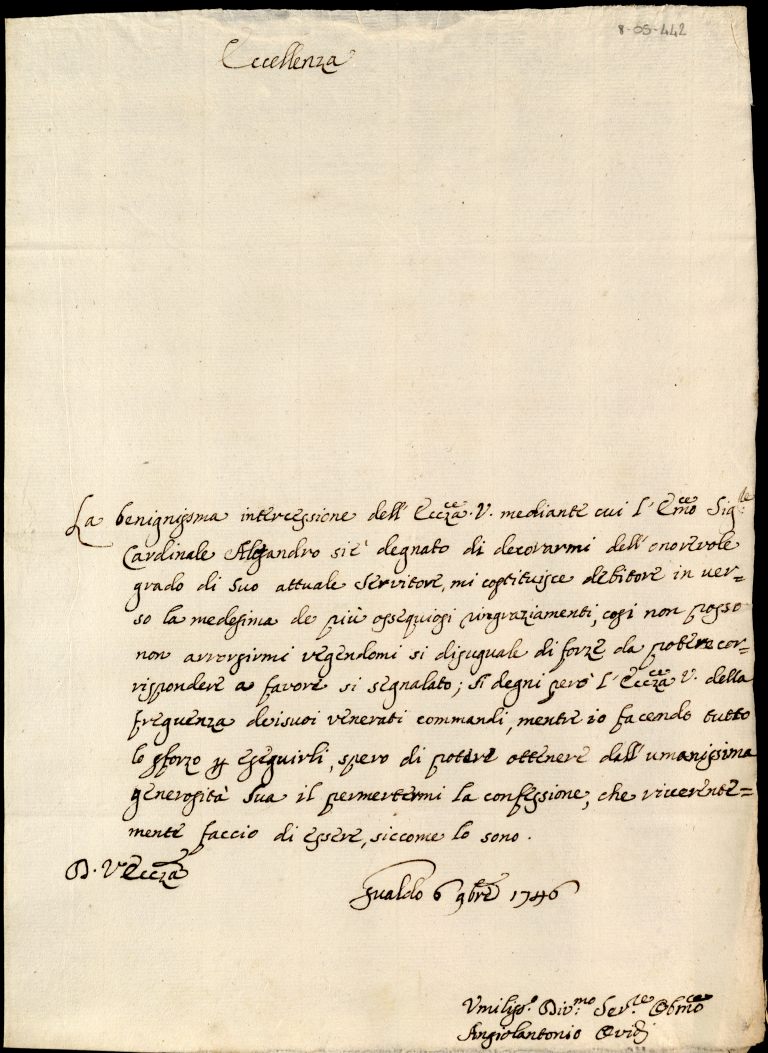 8-05-442
Eccellenza
La benignissma intercessione dell' Eccza. V. mediante cui l' Emo Sig.le
Cardinale Alesandro si è degnato di decorarmi dell' onorevole
grado di suo attuale Servitore, mi costituisce debitore in ver=
so la medesima de più ossequiosi ringraziamenti, così non posso
non arrossirmi vegendomi si disuguale di forze da potere cor=
rispondere a favore si segnalato; Si degni però l' Eccza V. della
frequenza de i suoi venerati commandi, mentre io facendo tutto
lo sforzo per eseguirli, spero di potere ottenere dall' umanissima
generosità Sua il permettermi la confessione, che riverente=
mente faccio di essere, siccome lo sono.
D. V. Eccza
Gualdo 6 9bre 1746
Umiliss.o Div.mo Ser.le Obmo
Angiolantonio Ovidj